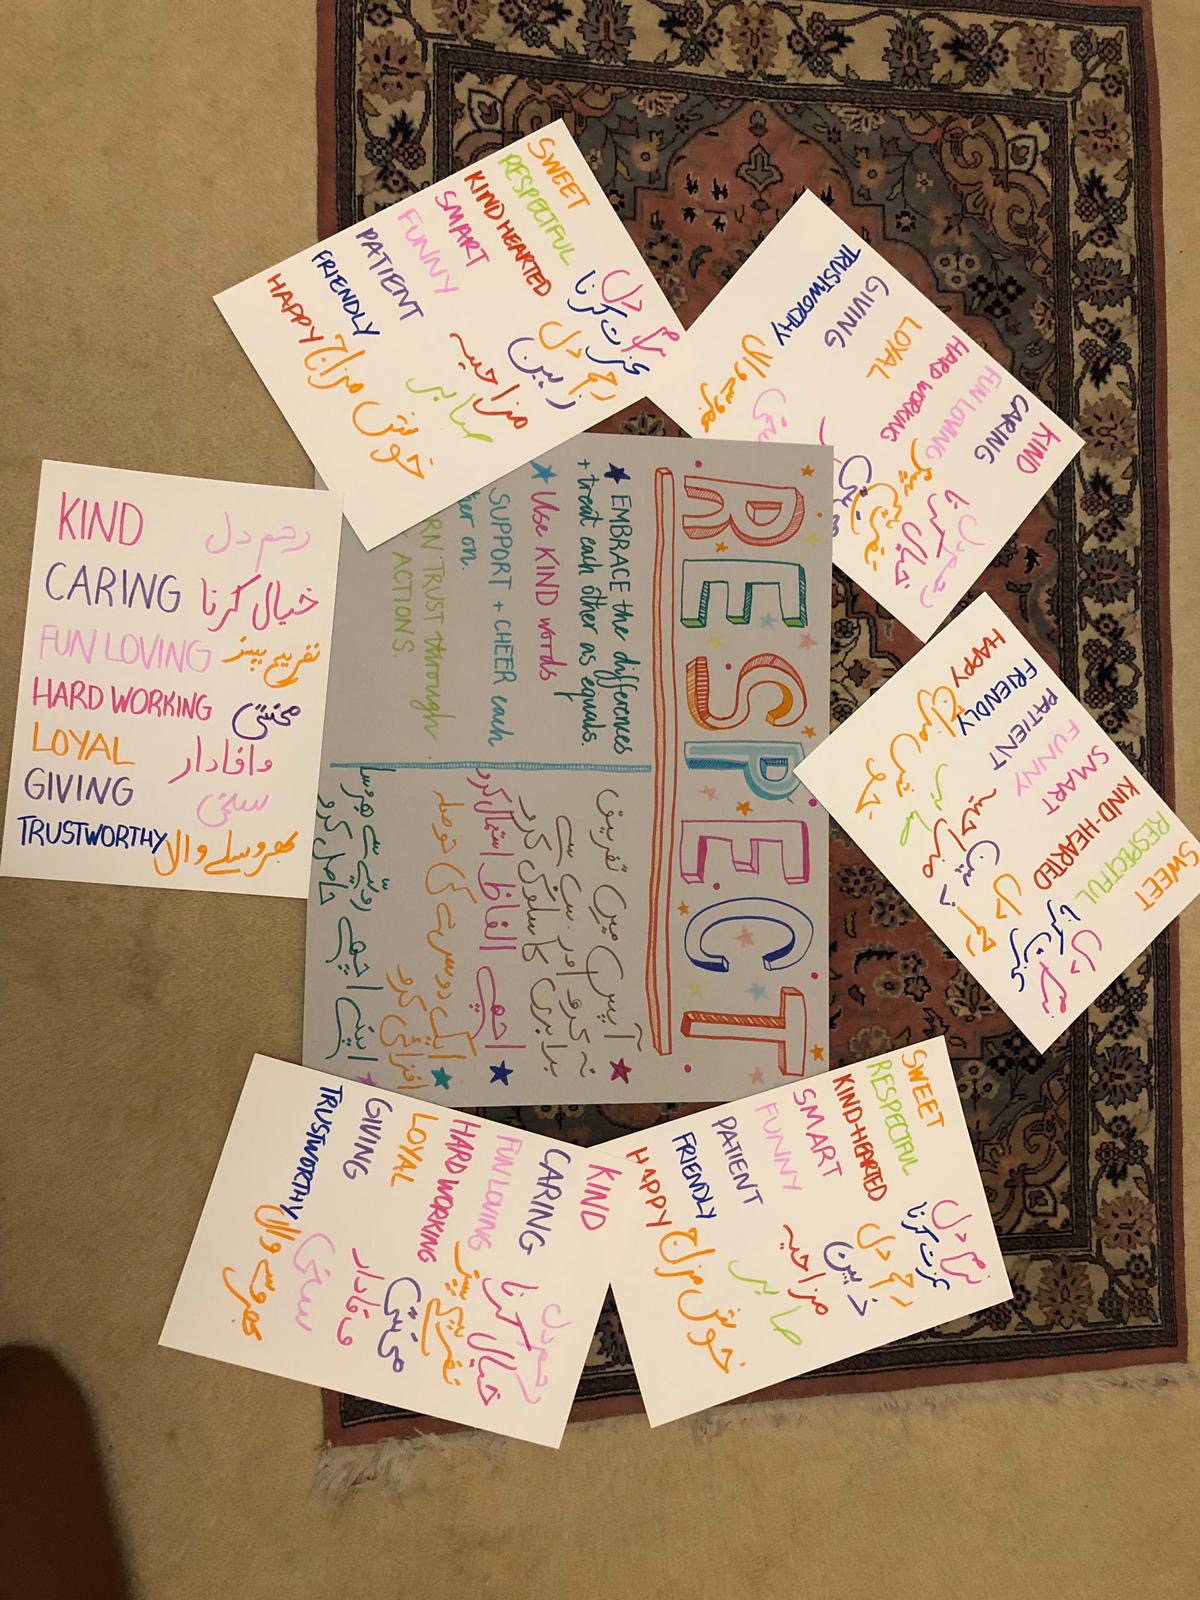 RESPECT
EMBRACE the differences
+ treat each other as equals.
Use KIND words
SUPPORT + CHEER each
on.
TRUST through
ACTIONS.
آپس میں تفریق
نہ کرو اور سب سے
برابری کا سلوک کرو
اچھے الفاظ استعمال کرو
ایک دوسرے کی حوصلہ
افزائی کرو
اپنے اچھے
حاصل کرو
SWEET نرم دل
RESPECTFUL عزت کرنا
KINDHEARTED رحم دل
SMART
FUNNY مزاحیہ
PATIENT صابر
FRIENDLY
HAPPY خوش مزاج
KIND رحم دل
CARING خیال کرنا
FUN LOVING
HARD WORKING
LOYAL
GIVING
TRUSTWORTHY
KIND رحم دل
CARING خیال کرنا
FUN LOVING تفریح
HARD WORKING محنتی
LOYAL وافادار
GIVING سخی
TRUSTWORTHY بھروسے والا
SWEET نرم دل
RESPECTFUL عزت کرنا
KIND-HEARTED رحم دل
SMART
FUNNY مزاحیہ
PATIENT صابر
FRIENDLY
HAPPY خوش مزاج
KIND رحم دل
CARING خیال کرنا
FUN LOVING
HARD WORKING
LOYAL وفادار
GIVING سخی
TRUSTWORTHY بھروسے والا
SWEET نرم دل
RESPECTFUL عزت کرنا
KIND-HEARTED رحم دل
SMART ذہین
FUNNY مزاحیہ
PATIENT صابر
FRIENDLY
HAPPY خوش مزاج